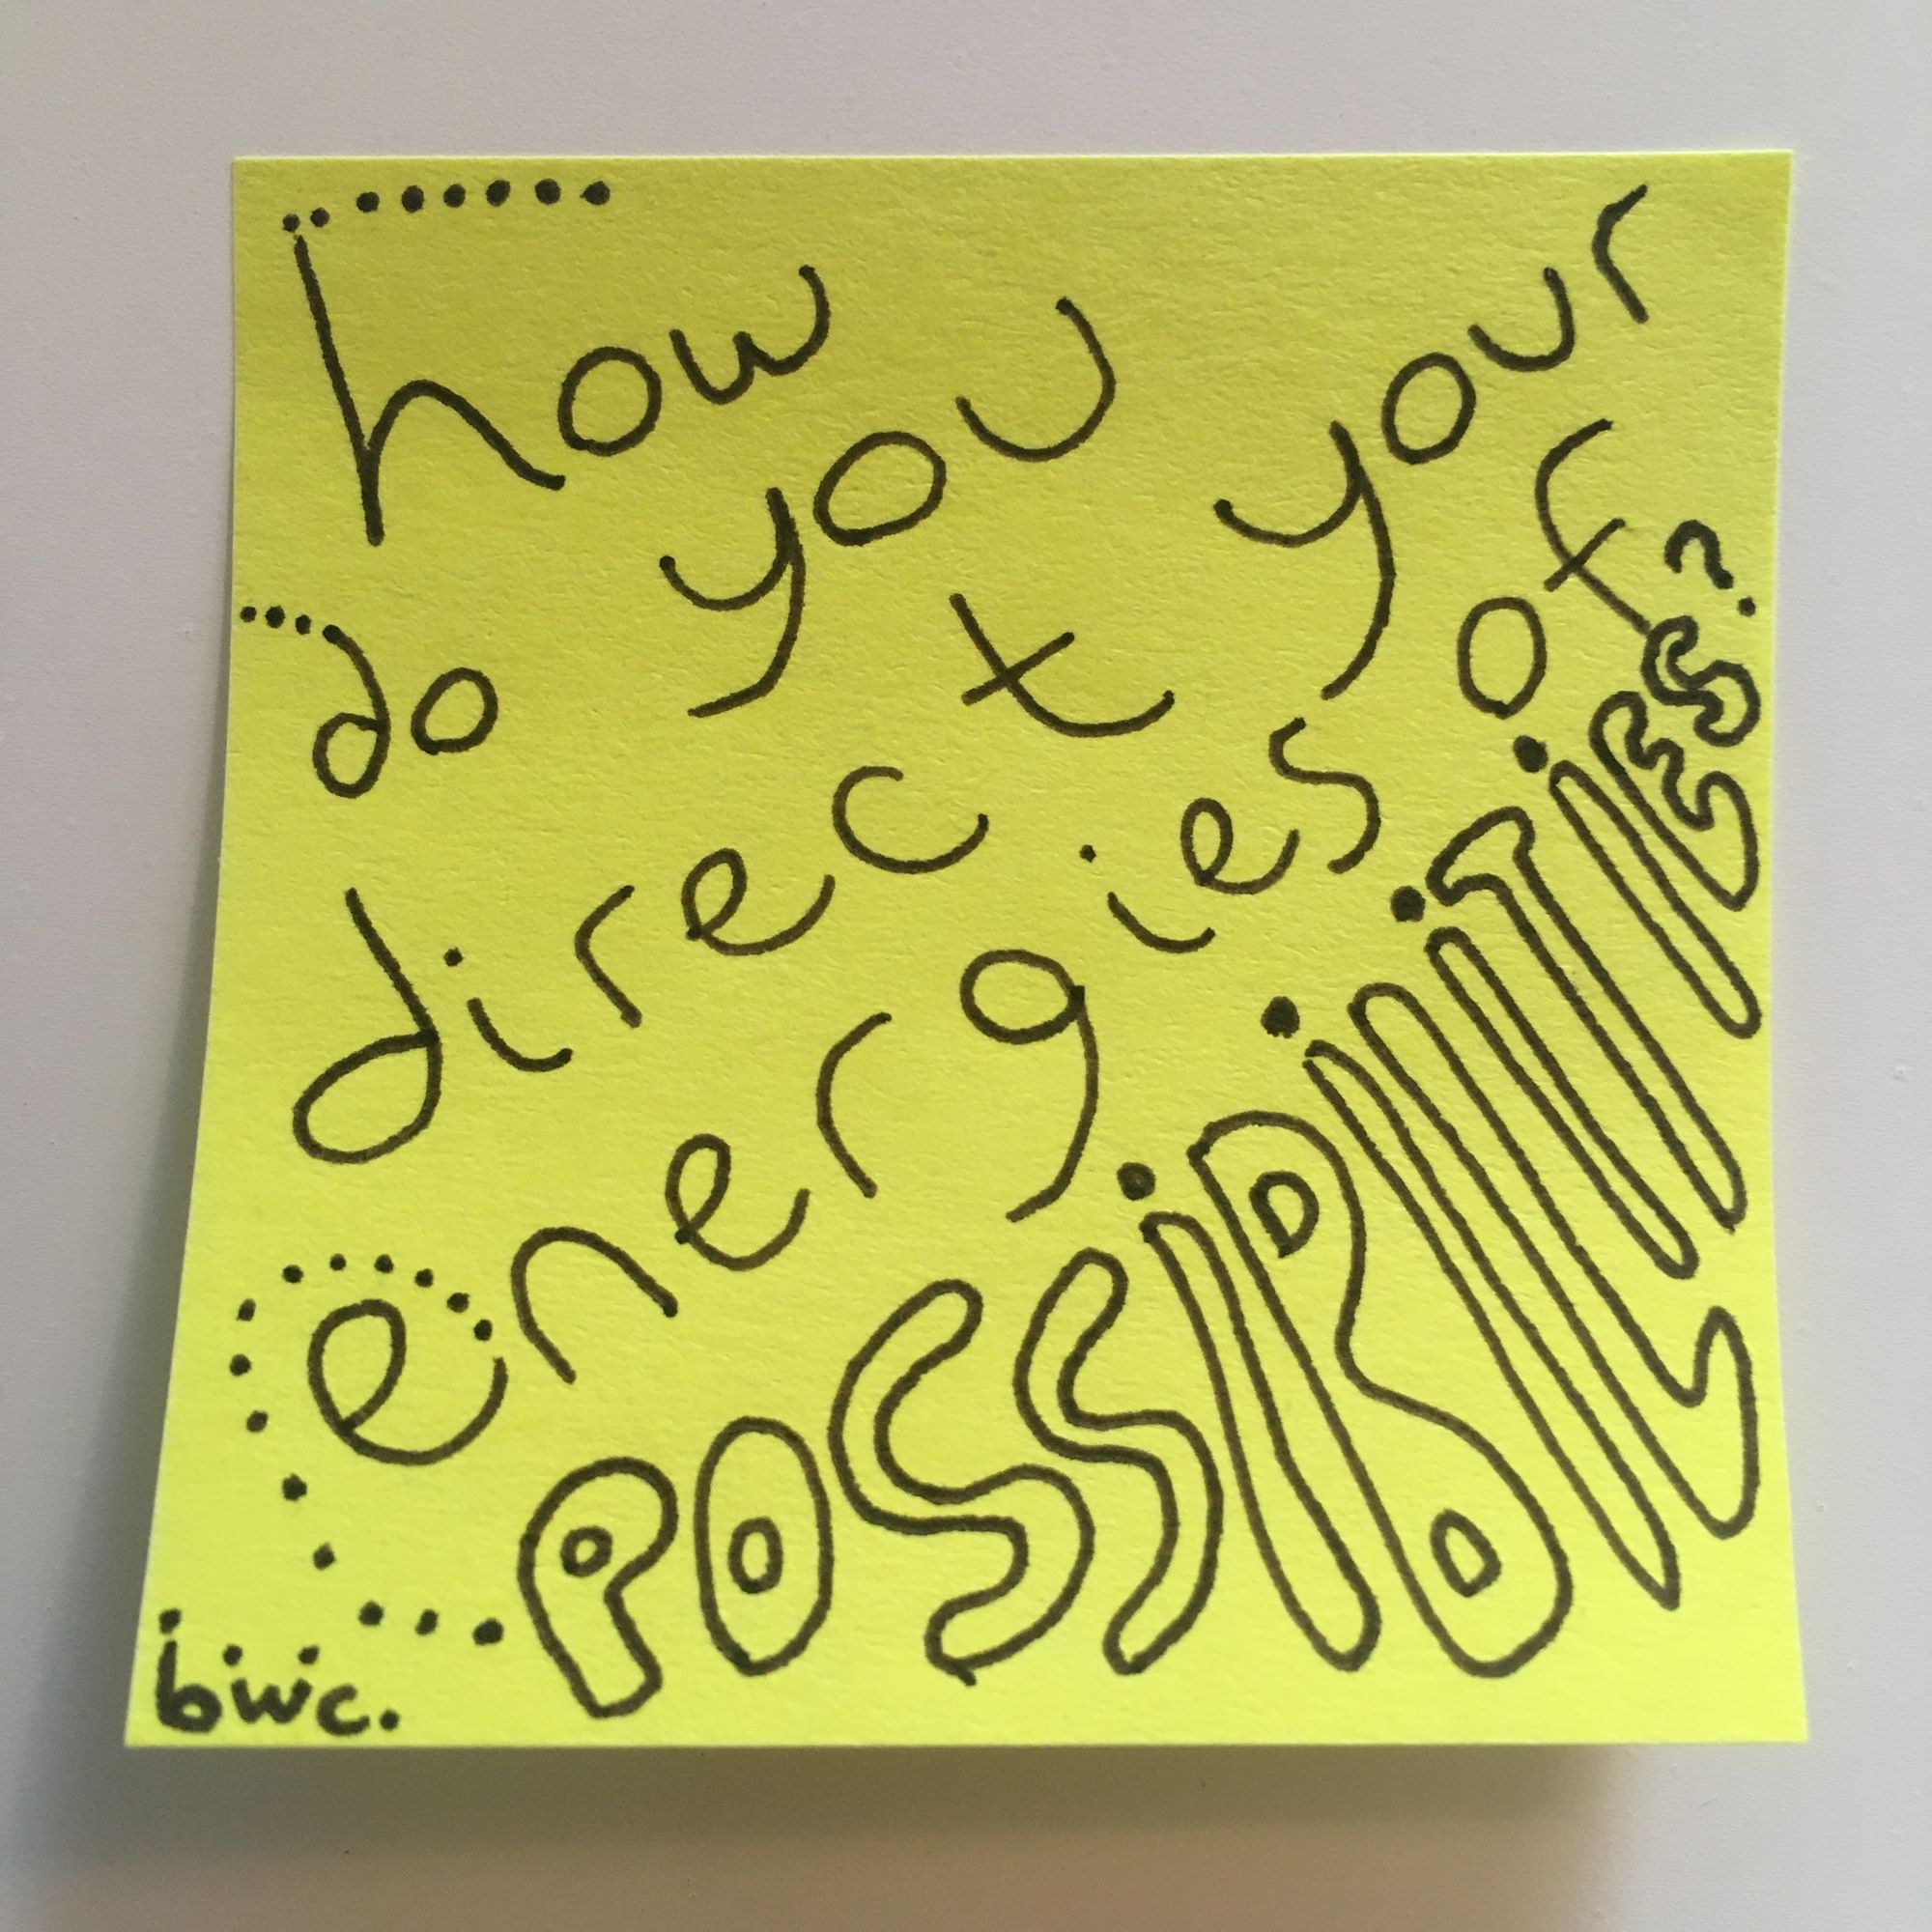 how
do you
direct your
energies of
POSSiBiLiTiES?
bwc.